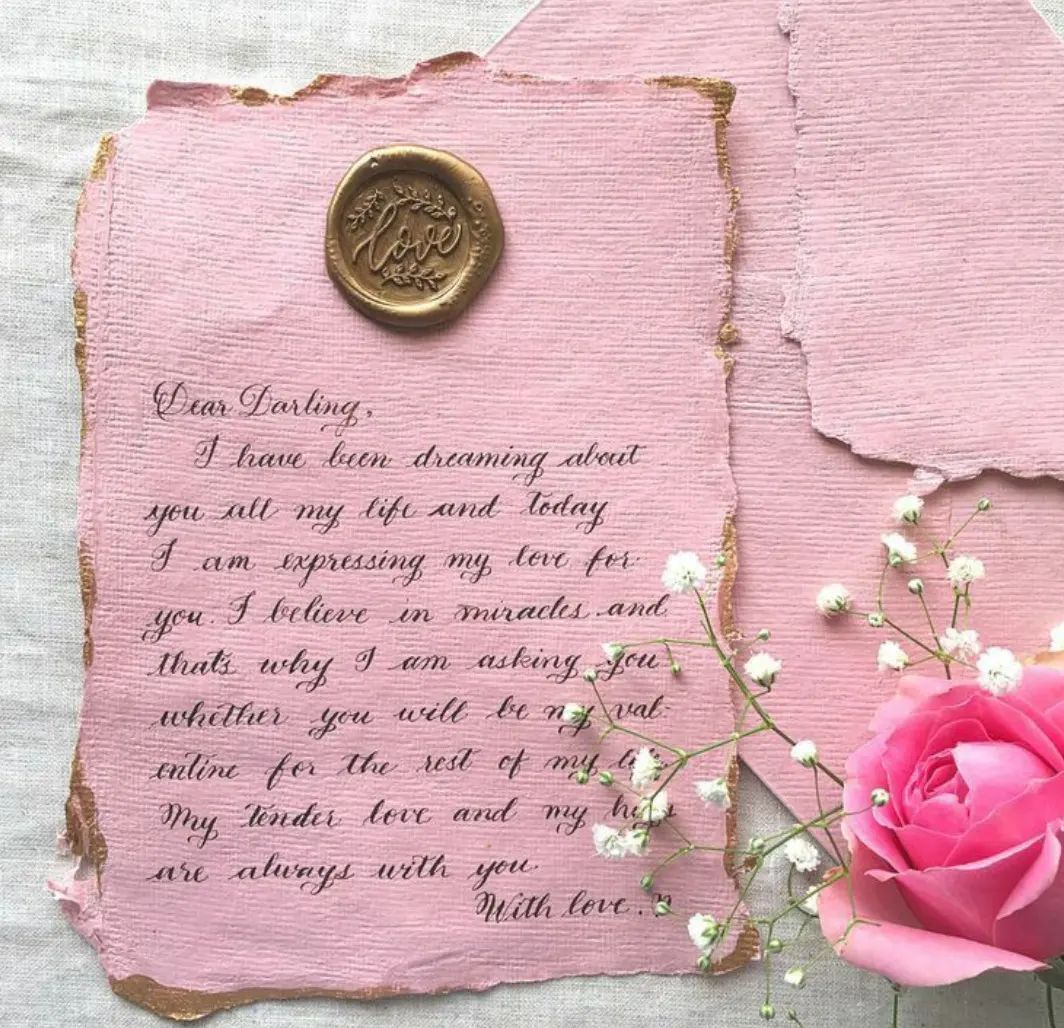 love
Dear Darling,
I have been dreaming about
you all my life and today
I am expressing my love for
you. I believe in miracles and
that's why I am asking you
whether you will be my val-
entine for the rest of my
My tender love and my
are always with you
With love.